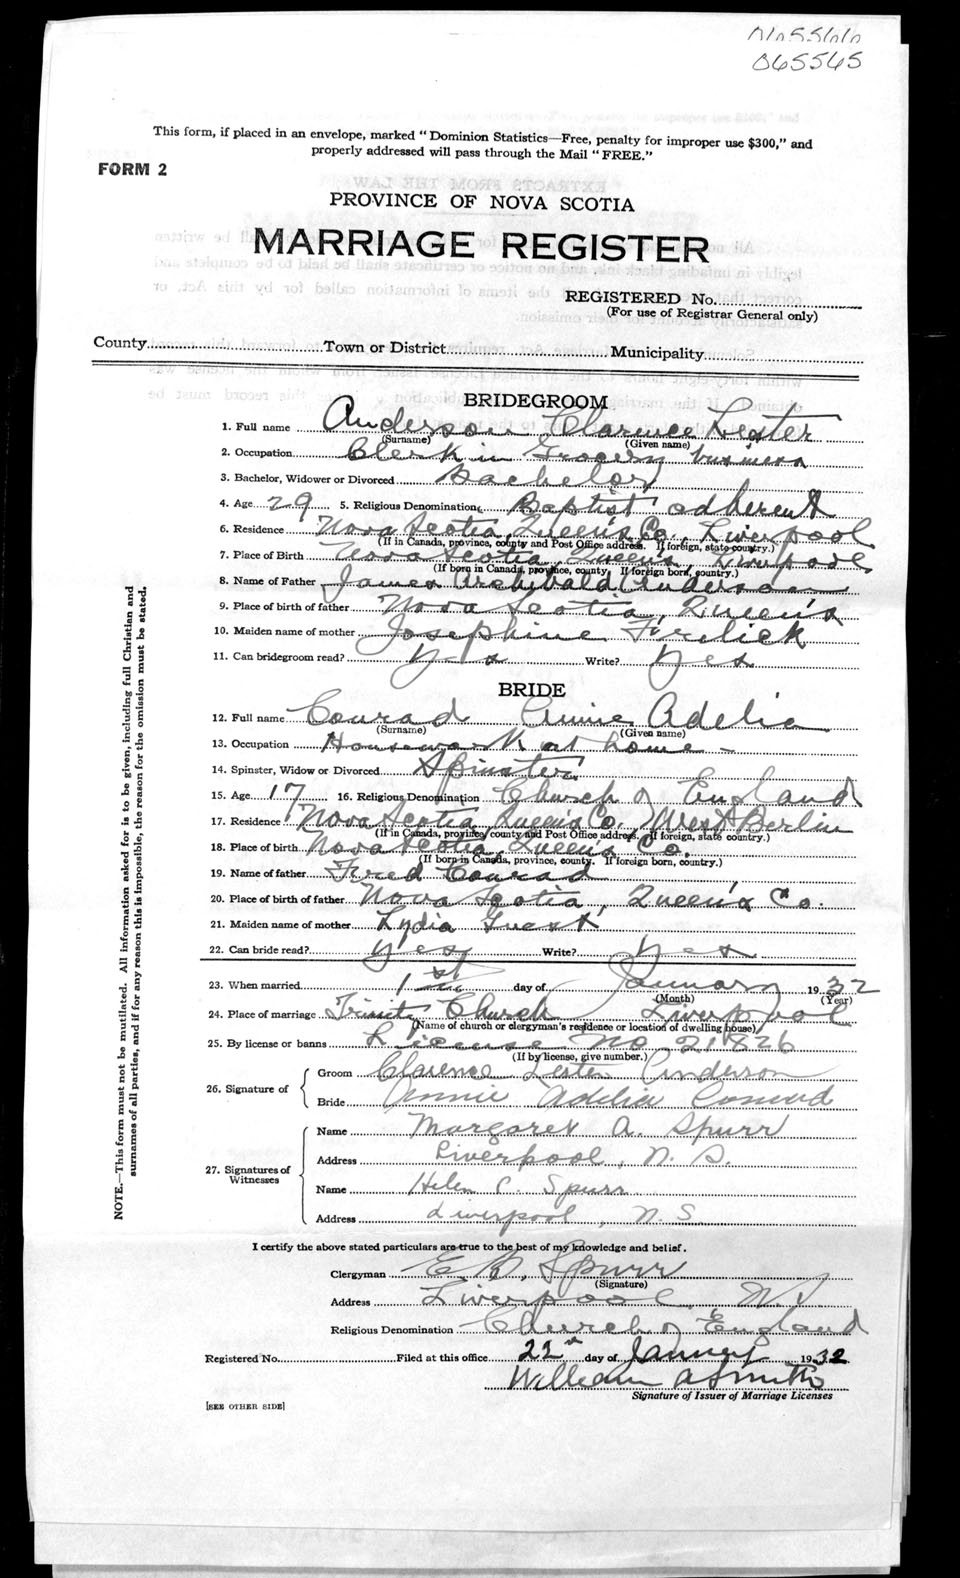 065565
This form, if placed in an envelope, marked "Dominion Statistics—Free, penalty for improper use $300," and
properly addressed will pass through the Mail "FREE."
FORM 2
PROVINCE OF NOVA SCOTIA
MARRIAGE REGISTER
REGISTERED No.
(For use of Registrar General only)
County Town or District Municipality
BRIDEGROOM
1. Full name Anderson Clarence Lester
(Surname) (Given name)
2. Occupation Clerk in Grocery business
3. Bachelor, Widower or Divorced Bachelor
4. Age 29 5. Religious Denomination Baptist adherent
6. Residence Nova Scotia, Queen's Co., Liverpool
(If in Canada, province, county and Post Office address. If foreign, state country.)
7. Place of Birth Nova Scotia, Queens, Liverpool
(If born in Canada, province, county. If foreign born, country.)
8. Name of Father James Archibald Anderson
9. Place of birth of father Nova Scotia, Queen's
10. Maiden name of mother Josephine
11. Can bridegroom read? Yes Write? Yes
BRIDE
12. Full name Conrad Annie Adelia
(Surname) (Given name)
13. Occupation Housework at home -
14. Spinster, Widow or Divorced Spinster
15. Age 17 16. Religious Denomination Church of England
17. Residence Nova Scotia, Queen's Co., West Berlin
(If in Canada, province, county and Post Office address. If foreign, state country.)
18. Place of birth Nova Scotia, Queen's Co.
(If born in Canada, province, county. If foreign born, country.)
19. Name of father Fred Conrad
20. Place of birth of father Nova Scotia, Queen's Co.
21. Maiden name of mother Lydia Guest
22. Can bride read? Yes Write? Yes
23. When married 1st day of January 1932
(Month) (Year)
24. Place of marriage Trinity Church Liverpool
(Name of church or clergyman's residence or location of dwelling house)
25. By license or banns License No 21826
(If by license, give number.)
26. Signature of
Groom Clarence Lester Anderson
Bride Annie Adelia Conrad
27. Signatures of Witnesses
Name Margaret A. Spurr
Address Liverpool, N. S.
Name Helen C. Spurr
Address Liverpool, N. S.
I certify the above stated particulars are true to the best of my knowledge and belief.
Clergyman E. B. Spurr
(Signature)
Address Liverpool, N.S.
Religious Denomination Church of England
Registered No. Filed at this office 22nd day of January 1932
William A Smith
Signature of Issuer of Marriage Licenses
[SEE OTHER SIDE]
NOTE.—This form must not be mutilated. All information asked for is to be given, including full Christian and
surnames of all parties, and if for any reason this is impossible, the reason for the omission must be stated.